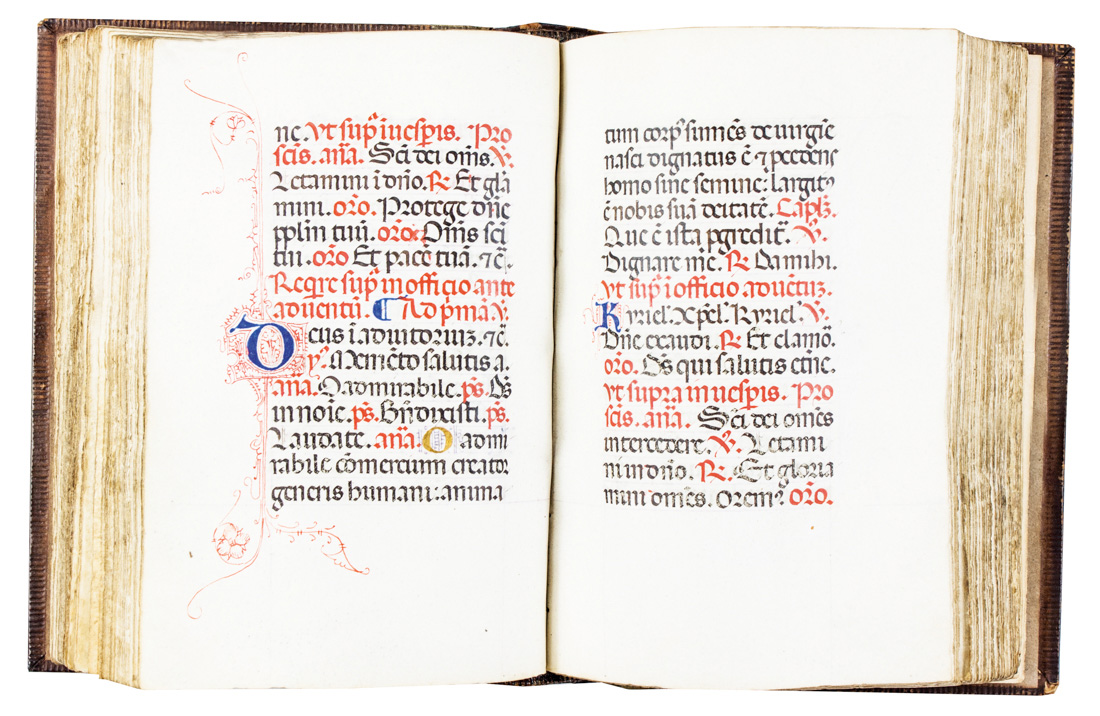 ne. Vt sup̄ ī uesp̄is. Pro
sc̄is. an̄a. Sc̄i dei om̄s. ℣.
Letamini ī dn̄o. ℟. Et glā
mini. orō. Protege dn̄e
pplm̄ tuū. orō. Om̄s sc̄i
tui. orō Et pacē tuā. ⁊c̄.
Reqre sup̄ in officio ante
aduentū. ¶ Ad pmā ℣.
Deus ī adiutoriuꝫ. ⁊c̄.
ỹ. Memēto salutis a.
an̄a. O admirabile. ps̄. Ds̄
in noīe. ps̄. Bn̄dixisti. ps̄.
Laudate. an̄a. O admi
rabile cōmercium creator
generis humani: anima
tum corpꝰ sumēs de uirgīe
nasci dignatus ē ⁊ pcedens
homo sine semine: largitꝰ
ē nobis suā deitatē. Capl̄ꝫ.
Que ē ista pgredit̄. ℣.
Dignare me. ℟. Da mihi.
vt sup̄ ī officio aduētuꝫ.
Kyriel̄. Xp̄el̄. Kyriel̄. ℣.
Dn̄e exaudi. ℟. Et clamō.
orō. Ds̄ qui salutis etn̄e.
vt supra in uesp̄is. Pro
sc̄is. an̄a. Sc̄i dei omēs
intercedere. ℣. Letami
ni in dn̄o. ℟. Et gloria
mini omēs. Orem⁹ orō.